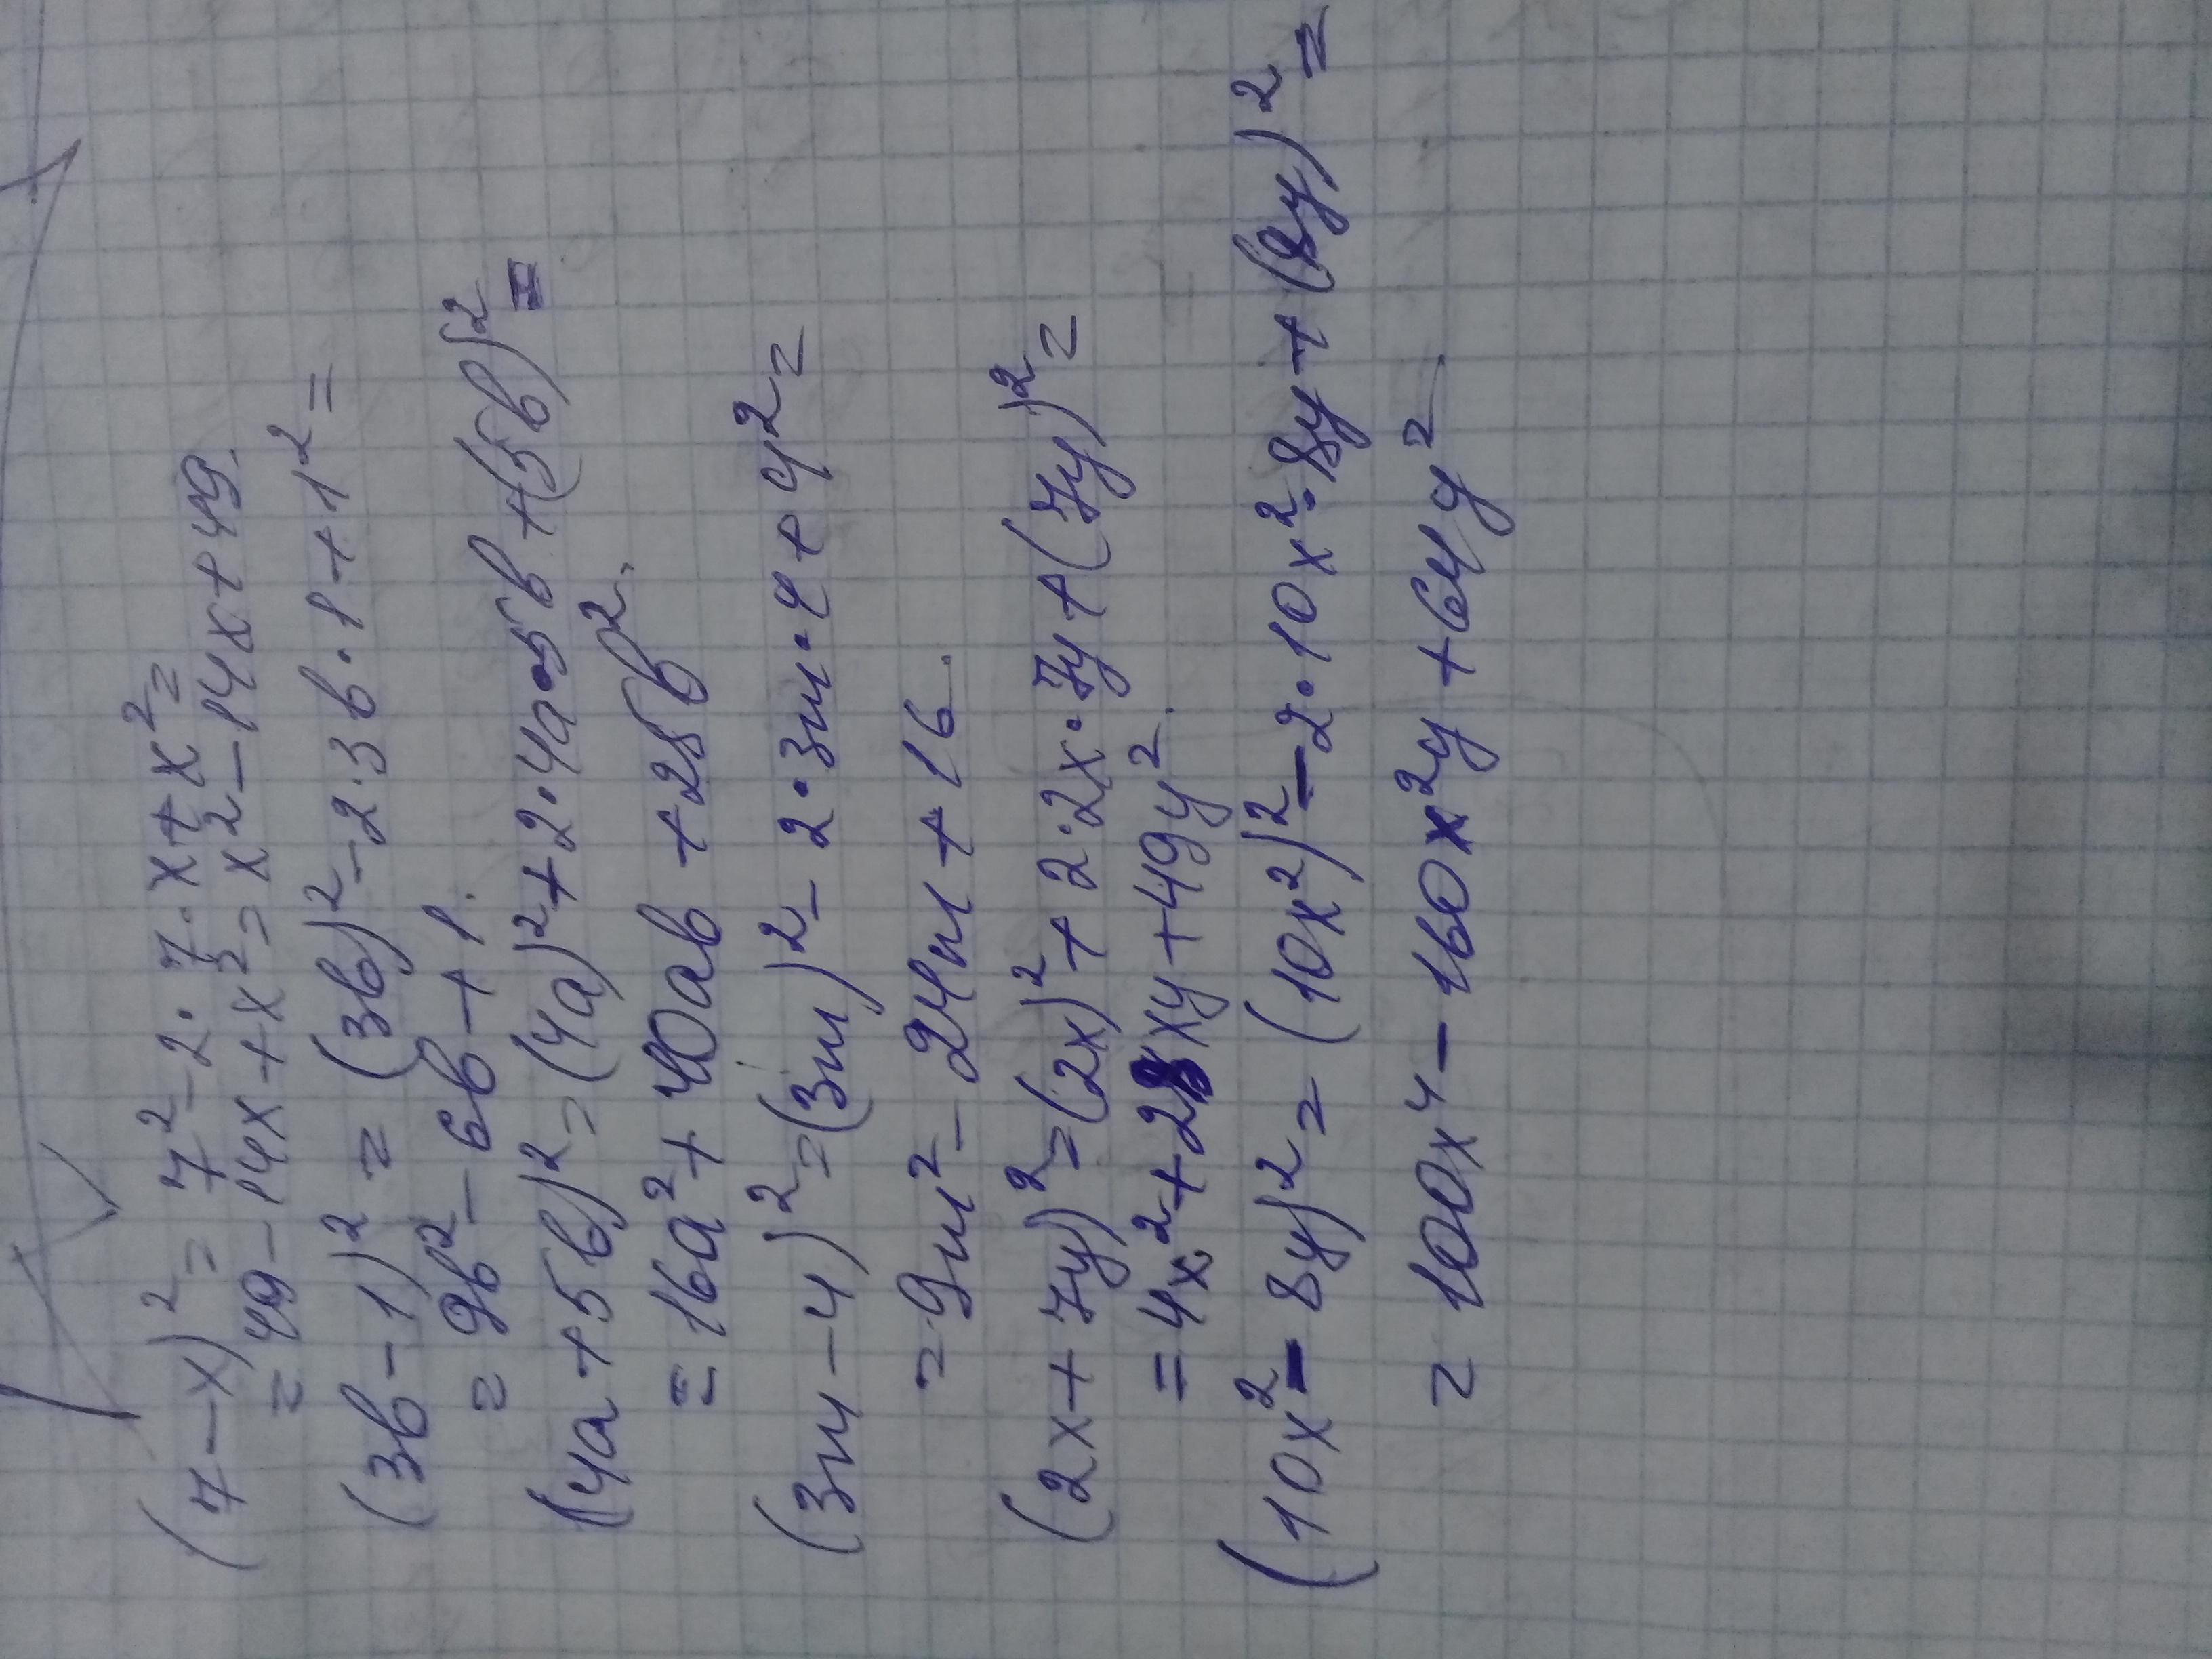 (7-x)² = 7² - 2 · 7 · x + x² =
= 49 - 14x + x² = x² - 14x + 49.
(3b - 1)² = (3b)² - 2 · 3b · 1 + 1² =
= 9b² - 6b + 1.
(4a + 5b)² = (4a)² + 2 · 4a · 5b + (5b)² =
= 16a² + 40ab + 25b².
(3m - 4)² = (3m)² - 2 · 3m · 4 + 4² =
= 9m² - 24m + 16.
(2x + 7y)² = (2x)² + 2 · 2x · 7y + (7y)² =
= 4x² + 28xy + 49y².
(10x² - 8y)² = (10x²)² - 2 · 10x² · 8y + (8y)² =
= 100x⁴ - 160x²y + 64y².